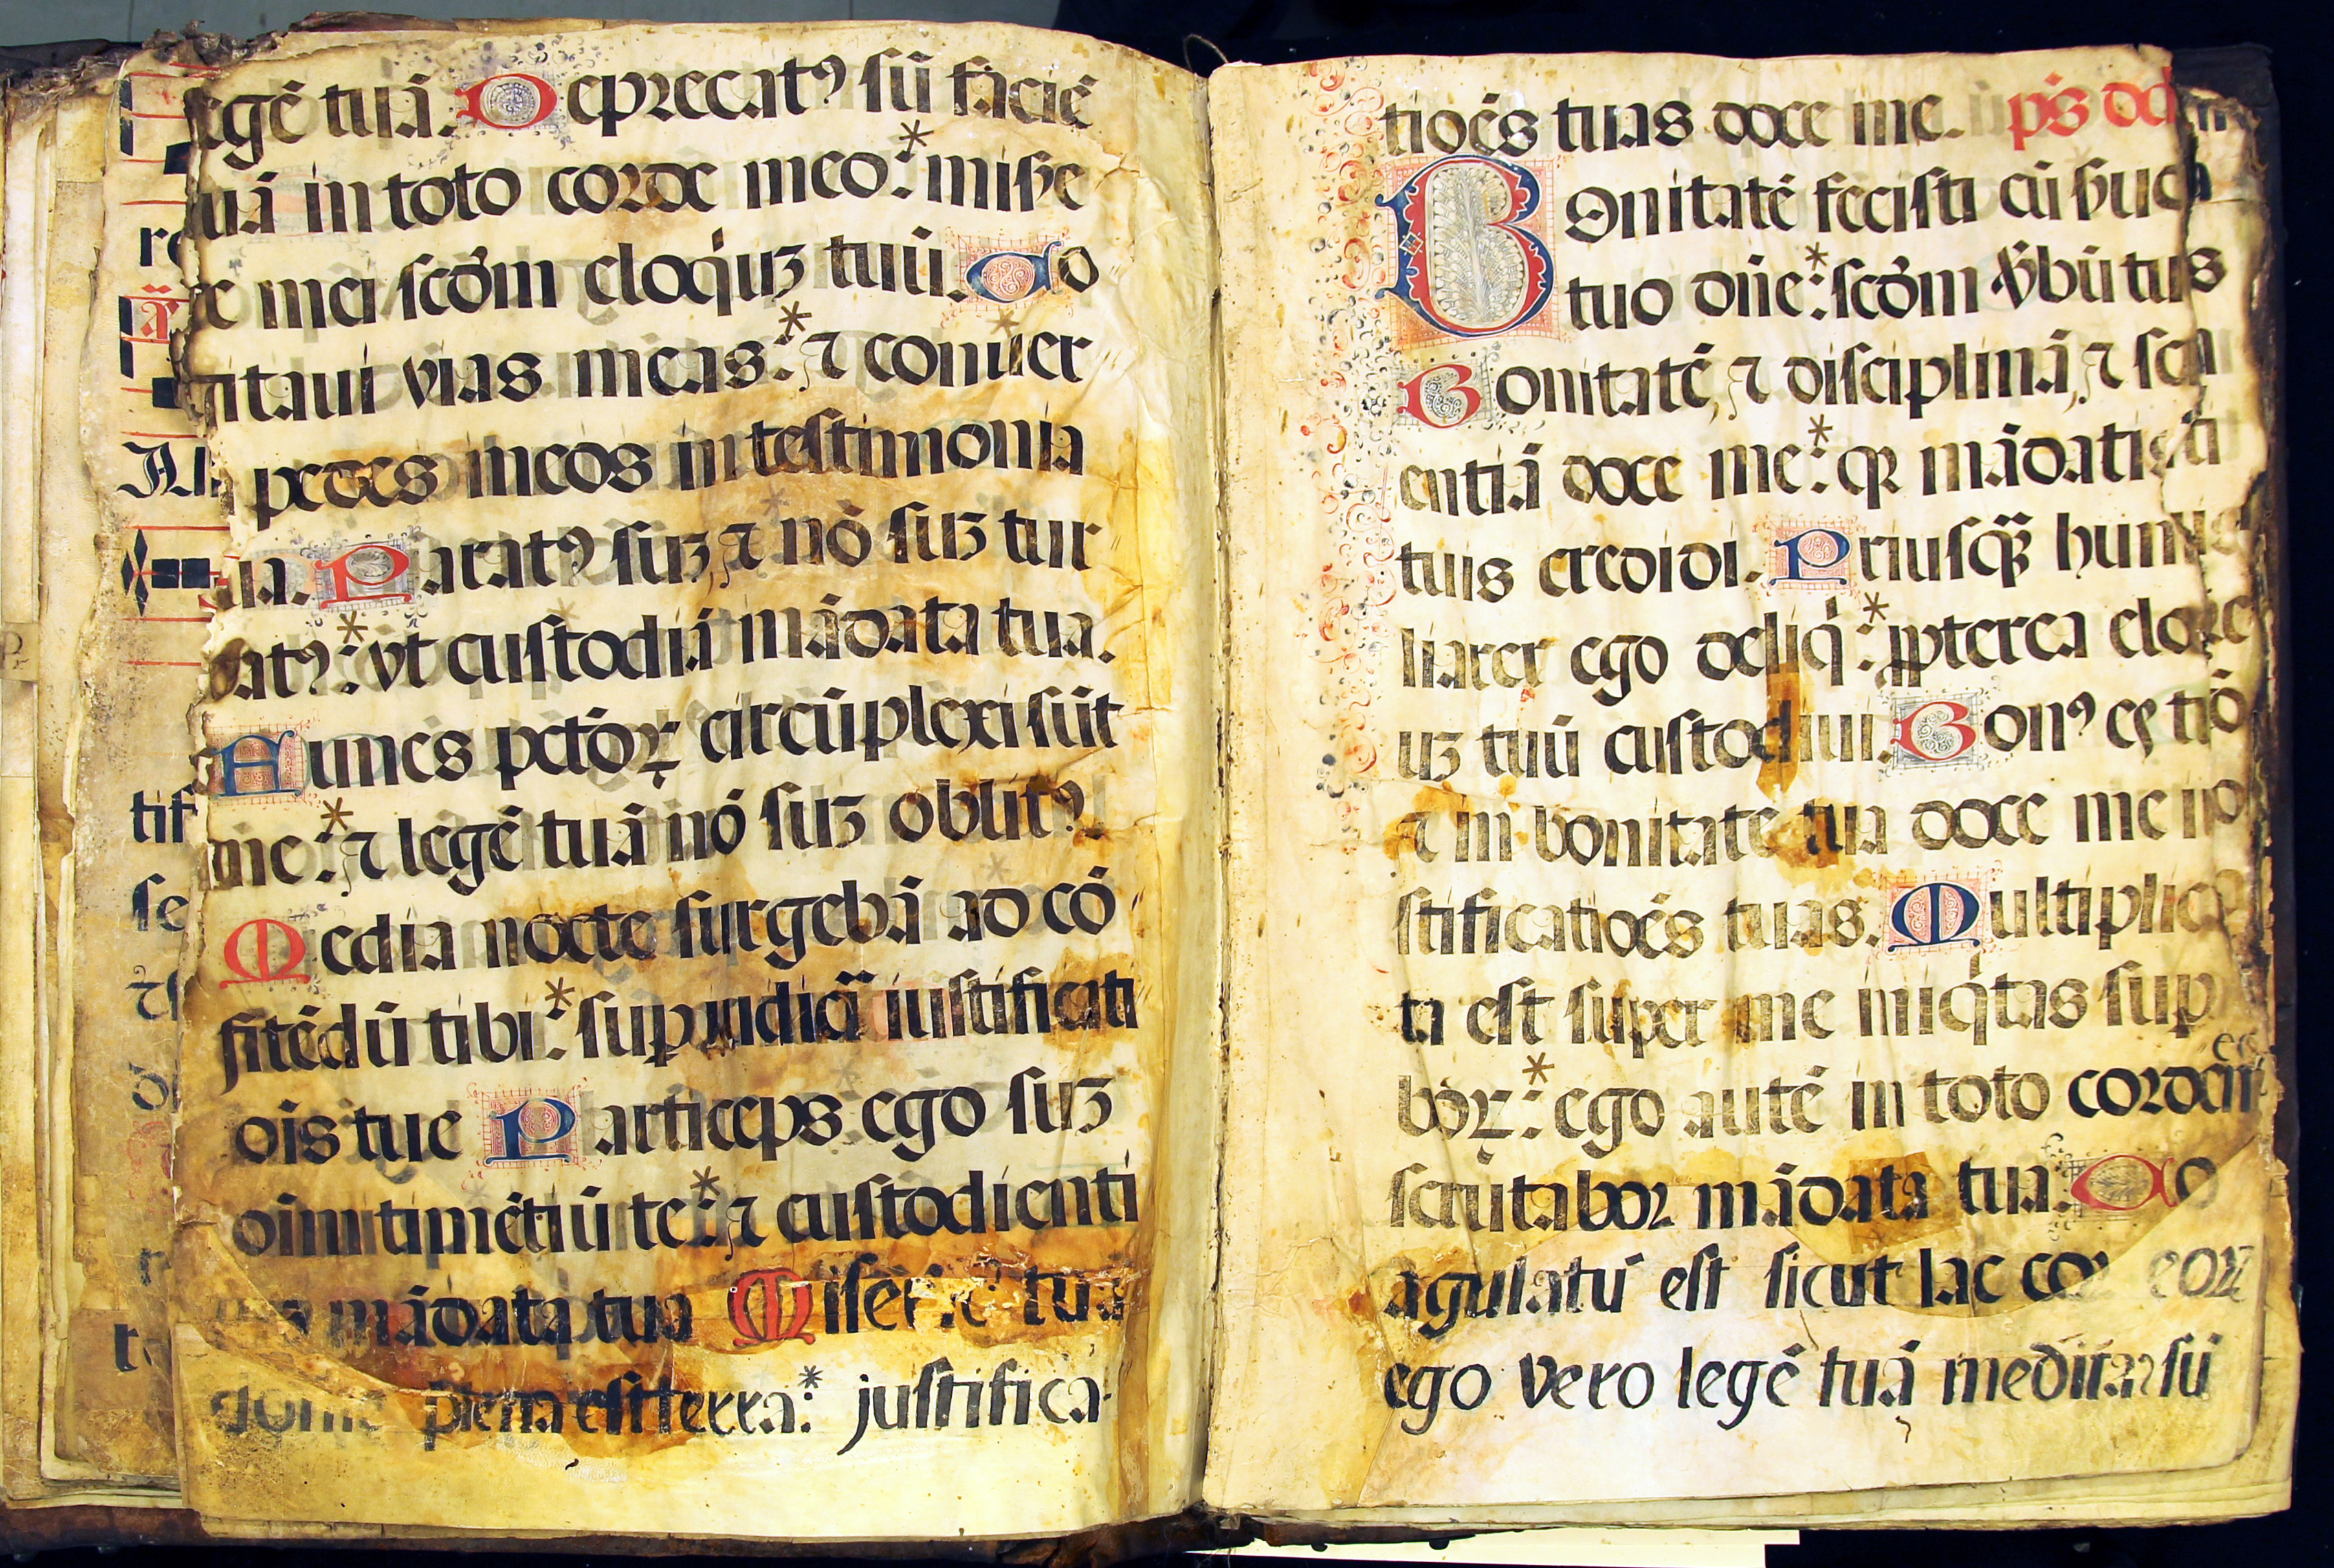 legē tuā. Deprecatꝰ sū faciē
tuā in toto corde meo:* mise
re mei scďm eloq́uꝫ tuū. Co
gitaui vias meas:* ⁊ conuer
ti pedes meos in testimonia
tua. Paratꝰ suꝫ, ⁊ nō suꝫ tur
batꝰ:* vt custodiā mādata tua.
Funes pctōꝝ circūplexi sūt
me:* ⁊ legē tuā nō suꝫ oblitꝰ
Media nocte surgebā ad cō
fitēdū tibi:* sup iudiciā iustificati
ōis tue Particeps ego suꝫ
oīm timētiū te:* ⁊ custodienti
mādata tua Misēr tua
domie plena est terra:* justifica-
tioēs tuas doce me. ps dd
Bonitatē fecisti cū ẜuo
tuo dn̄e:* scďm v̄bū tuū
Bonitatē, ⁊ disciplinā, ⁊ sci
entiā doce me:* qꝛ mādatis
tuis credidi. Priusq̄ꝫ humi
liarer ego deliq́:* ꝓpterea eloq́
uꝫ tuū custodiui. Bonꝰ es tu
⁊ in bonitate tua doce me
stificatioēs tuas. Multiplica
ta est super me iniq́tas sup
boꝝ:* ego autē in toto corde
scrutabor mādata tua. Co
agulatū est sicut lac cor eoꝝ
ego vero legē tuā meditat sū
re
Al
tif
se